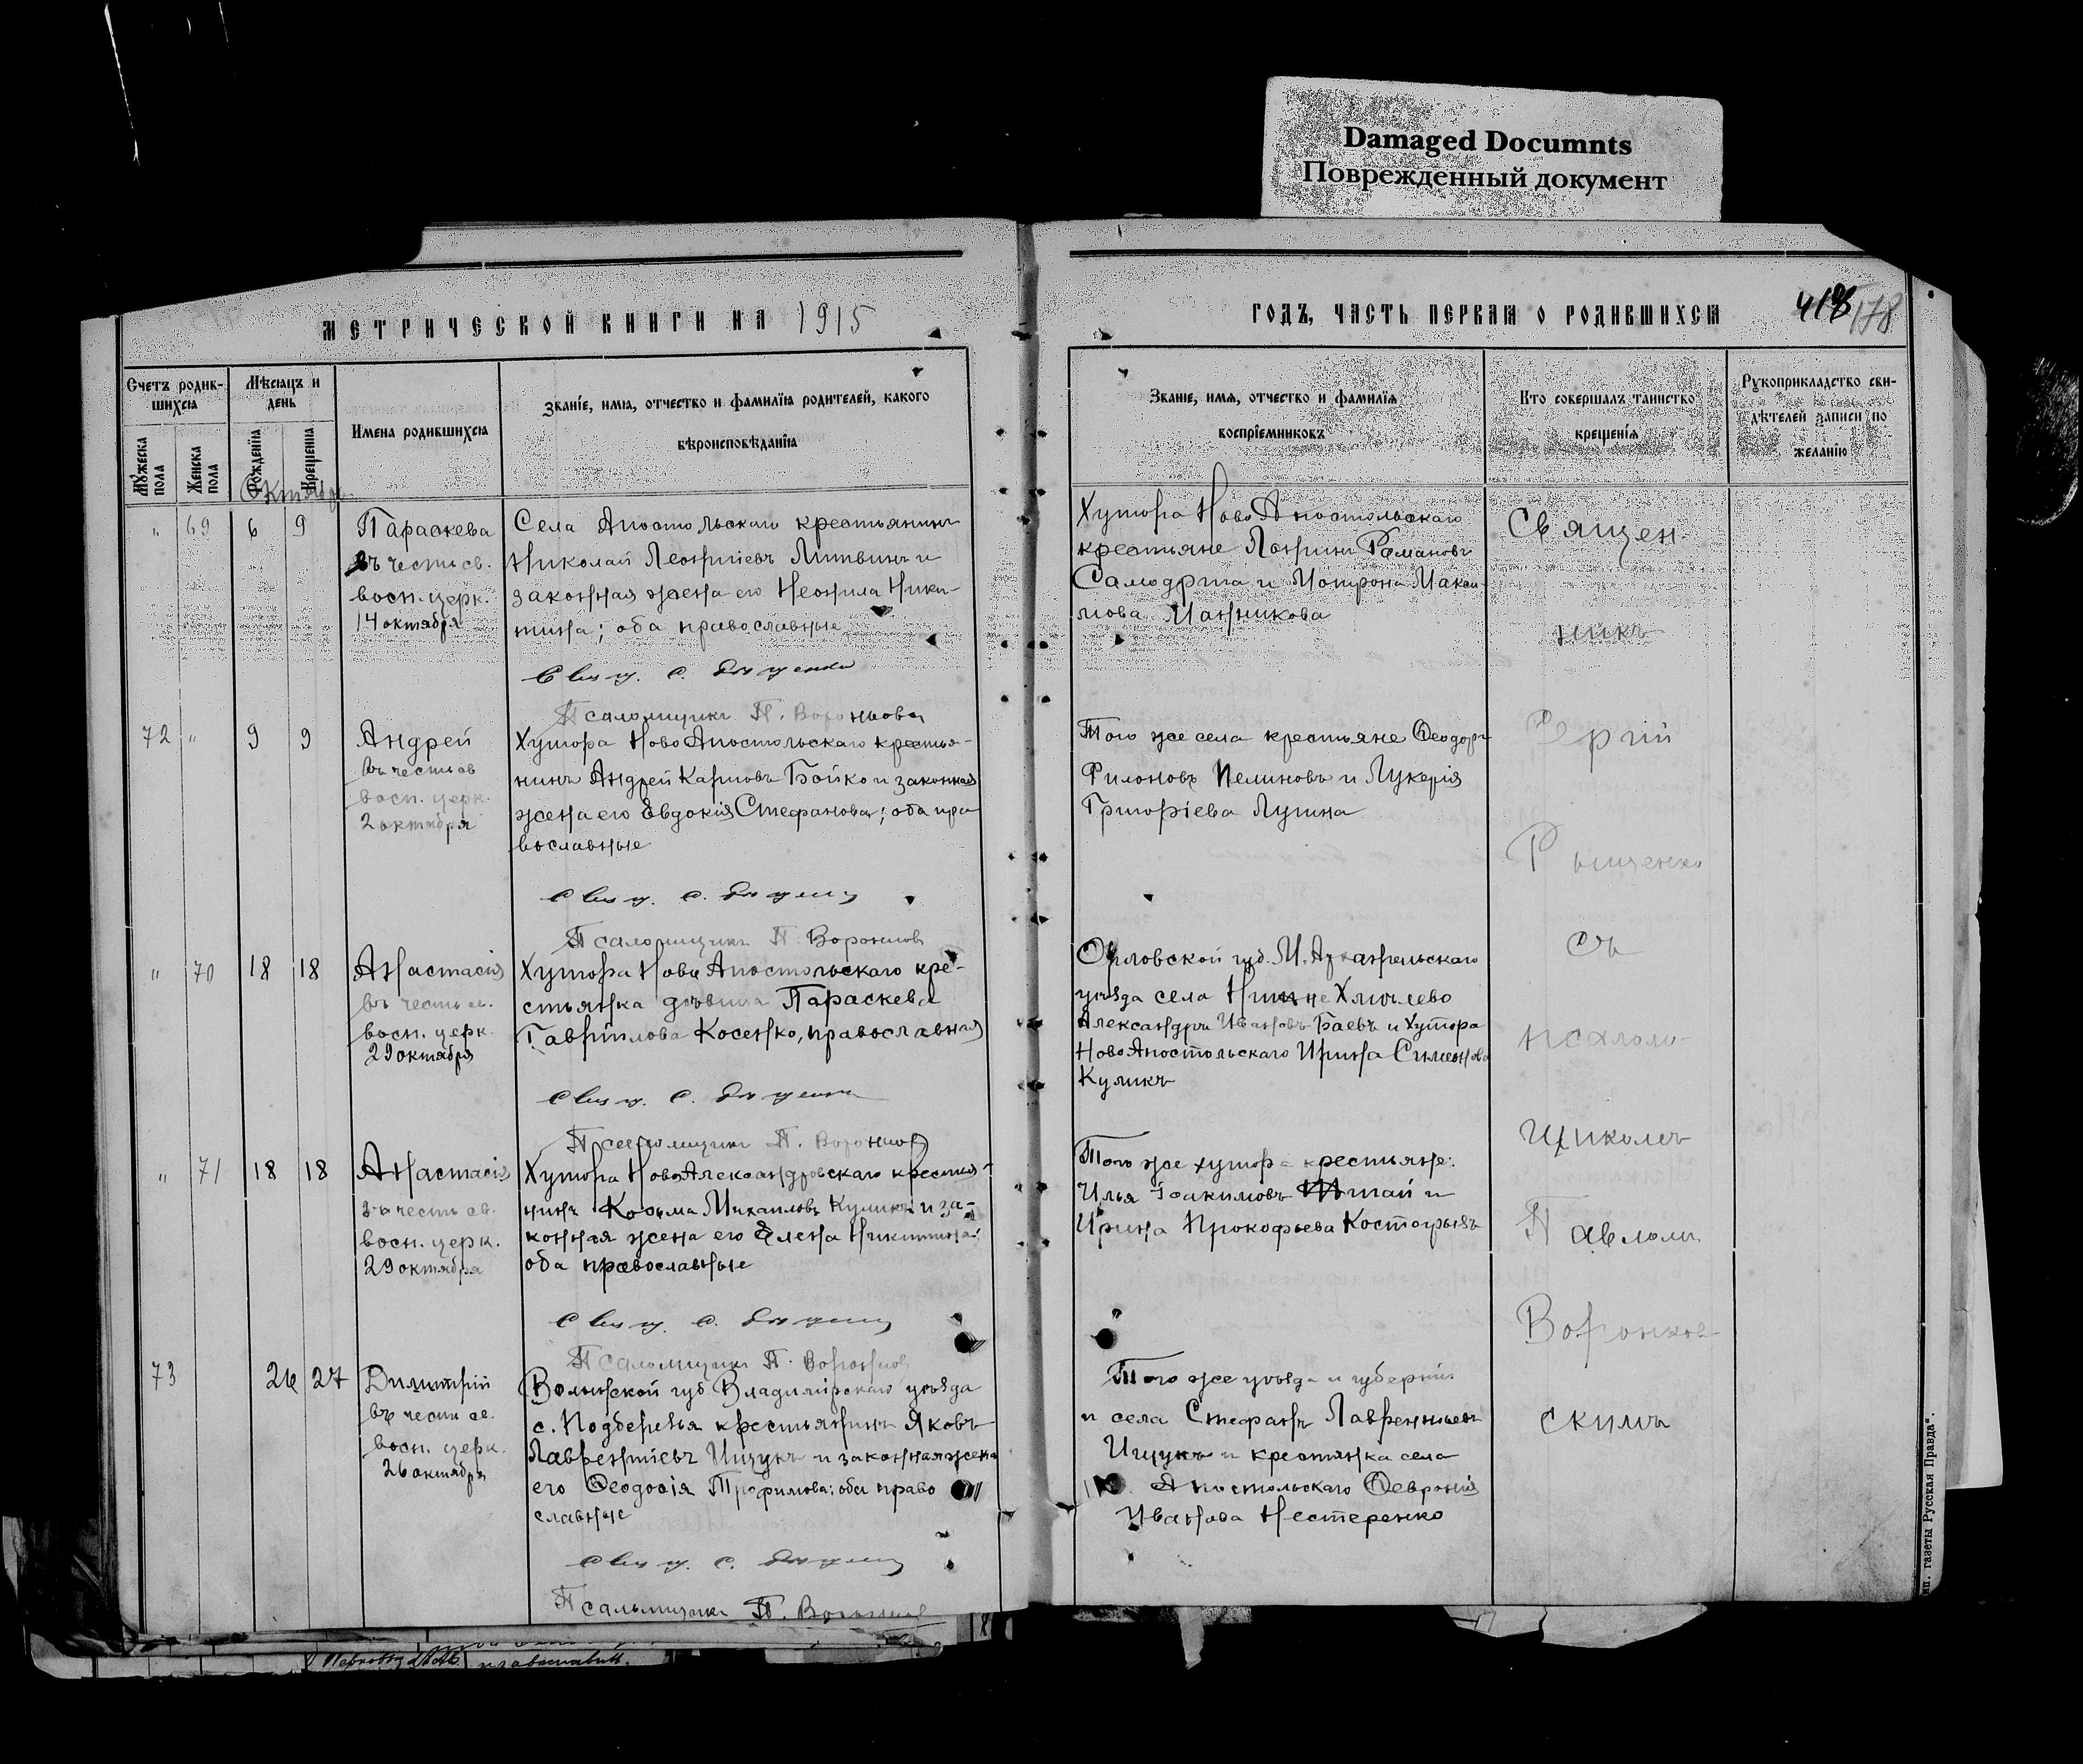 Damaged Documnts
Поврежденный документ
МЕТРИЧЕСКОЙ КНИГИ НА 1915
ГОДЪ, ЧАСТЬ ПЕРВАЯ О РОДИВШИХСЯ
178
Счетъ родив-
шихся
Мужеска пола
Женска пола
Мѣсяцъ и
день
Рожденія
Крещенія
Имена родившихся
Званіе, имя, отчество и фамилія родителей, какого
вѣроисповѣданія
Званіе, имя, отчество и фамилія
воспріемниковъ
Кто совершалъ таинство
крещенія
Рукоприкладство сви-
дѣтелей записи по
желанію
Октябрь
" 69 6 9
Параскева
въ честь св.
восп. церк.
14 октября
Села Апостольскаго крестьянинъ
Николай Леонтіевъ Литвинъ и
законная жена его Неонила Ники-
тина; оба православные
Свящ. С.
Псаломщикъ П.
Хутора Ново Апостольскаго
крестьяне Романовъ
Самодрыга и
72 " 9 9
Андрей
въ честь св
восп. церк.
2 октября
Хутора Ново Апостольскаго крестья-
нинъ Андрей Карповъ Бойко и законная
жена его Евдокія Стефанова; оба пра
вославные
Свящ. С.
Псаломщикъ П.
Того же села крестьяне Ѳеодоръ
Филоновъ и Лукерія
Григоріева
" 70 18 18
Анастасія
въ честь св.
восп. церк.
29 октября
Хутора Ново Апостольскаго кре-
стьянка дѣвица Параскева
Гавріилова Косенко, православная
Свящ. С.
Псаломщикъ П.
Орловской губ. М. Архангельскаго
уѣзда села
Александръ Ивановъ Баевъ и хутора
Ново Апостольскаго Ирина Симеонова
Куликъ
" 71 18 18
Анастасія
въ честь св.
восп. церк.
29 октября
Хутора Ново Александровскаго крестья-
нинъ Косьма Михаиловъ Куликъ и за-
конная жена его Елена Никитина:
оба православные
Свящ. С.
Псаломщикъ П.
Того же хутора крестьяне:
Илья Іоакимовъ и
Ирина Прокофьева
73 26 27
Димитрій
въ честь св.
восп. церк.
26 октября
Волынской губ. Владимірскаго уѣзда
с. Подберезья крестьянинъ Яковъ
Лаврентіевъ Ищукъ и законная жена
его Ѳеодосія Трофимова: оба право
славные
Свящ. С.
Псаломщикъ П.
Того же уѣзда и губерніи
и села Стефанъ Лаврентьевъ
Ищукъ и крестянка села
Апостольскаго Ѳевронія
Иванова Нестеренко
Священ-
никъ
Сергій
съ
псалом-
щикомъ
Павломъ
Воронков-
скимъ
тип. газеты "Русская Правда".